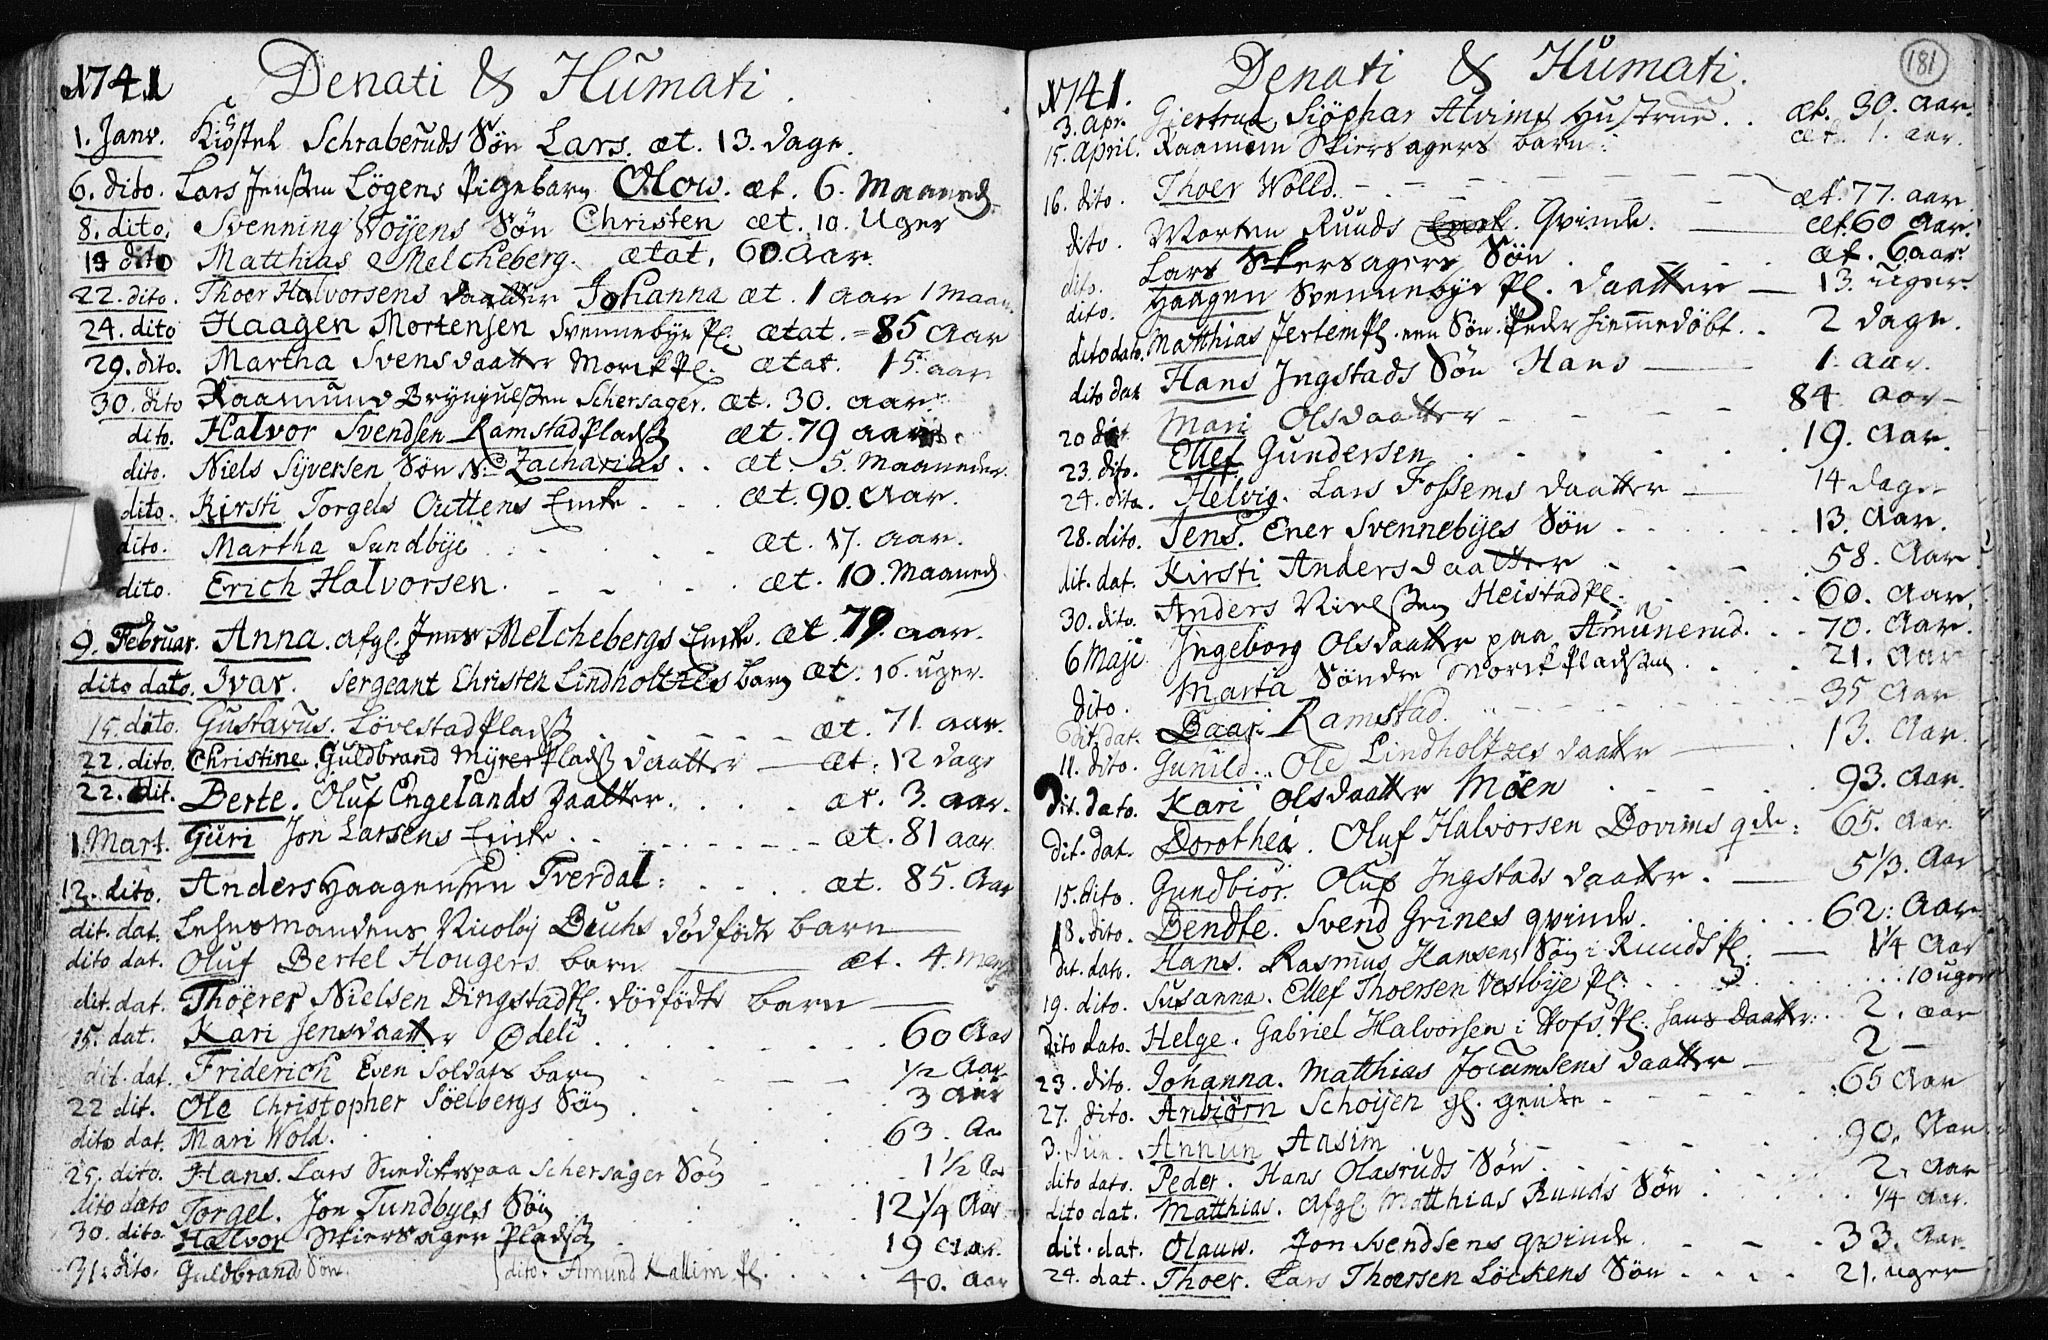 1741 Denati & Humati.
1. Janv. Kiöstel Schraberuds Sön Lars. æt. 13. dage.
6. dito. Lars Jenssen Lögens Pigebarn Olow. æt. 6. Maaned
8. dito. Svenning Woyens Sön Christen æt. 10. Uger
19 dito Matthias Melcheberg. ætat. 60 Aar.
22. dito. Thoer Halvorsens daatter Johanna æt. 1 aar 1 Maan
24. dito Haagen Mortensen Svennebye Pl. ætat. = 85 Aar
29. dito. Martha Svensdaatter Morck Pl. ætat. 15. aar
30. dito Raamund Bryngulssen Schersager. æt. 30. aar.
dito. Halvor Svendsen Ramstad Pladss æt. 79 aar
dito. Niels Syversen Sön N: Zacharias . . æt. 5. Maaneder.
dito. Kirsti Torgels Outtens Encke . . . æt. 90. Aar.
dito. Martha Sundbye æt. 17. aar.
dito. Erich Halvorsen. æt. 10. Maaned
9. Februar. Anna. afgl. Jens Melchebergs Encke. æt. 79. aar.
dito dato. Ivar. Sergeant Christen Lindholtzes barn æt. 16. uger.
15. dito. Gustavus. Lövestad Pladss æt. 71. aar.
22. dito. Christine. Guldbrand Myrer Pladss daatter — æt. 12 dage
22. dit. Berte. Oluf Engelands Daatter. æt. 3. aar.
1. Mart. Guri Jon Larsens Encke æt. 81 aar
12. dito. Anders Haagensen Tverdal: æt. 85. Aar
dit. dat. Lehnsmandens Nicolaj Buchs dödfödte barn —
dito dat. Oluf Bertel Hougers barn — æt. 4. Men
dit. dat. Thoerer Nielsen Dingstad Pl. dödfödte barn —
15. dat. Kari Jensdaatter Ödeli 60 Aar
dit. dat. Friderich Even Soldats barn 1/2 Aar
22 dit. Ole Christopher Söelbergs Sön 3 Aar
dito dat. Mari Wold. 63. Aa
25. dito. Hans. Lars paa Schersager Sön 1 1/2 Aa
dito dato Torgel. Jon Tundbyes Sön 12 1/4 Aar
30. dito. Halvor Skiersager Pladss 19 Aar.
31. dito. Guldbrand Sön. dito. Amund Kallim Pl. 40. Aar
181
1741. Denati & Humati.
3. Apr. Giertrud Siöphar Alvims Hustrue. . æt. 30. Aar.
15. April. Raamum Skiersagers barn: æt. 1. aar.
16. dito. Thoer Wolld. æt. 77. aar
dito. Morten Ruuds Qvinde. — æt. 60 Aar.
dito. Lars Skersagers Sön æt. 6 aar.
dito. Haagen Svennebye Pl. daatter — 13. uger.
dito dato. Matthias Jerlem Pl. een Sön. Peder hiemmedöbt. . 2 dage.
dito dat Hans Ingstads Sön Hans — 1. aar.
20 dit. Mari Olsdaatter 84 Aar
23. dito. Ellef Gundersen 19. Aar.
24. dito. Helvig. Lars Fossems daatter — 14 dage
28. dito. Jens. Ener Svennebyes Sön 13. Aar.
dit. dat. Kirsti Andersdaatter 58. Aar
30. dito. Anders Nielssen Heistad Pl. 60. Aar.
6 Maji Ingeborg Olsdaatter paa Amunerud. . . 70. Aar.
dito. Marta Söndre Morck Pladssen 21. Aar
dit. dat. Baar. Ramstad. 35 Aar
11. dito. Gunild. Ole Lindholtzes daatter — 13. Aar.
dit. dato. Kari Olsdaatter Möen 93. Aar.
dit. dat. Dorothea. Oluf Halvorsen Bovims qde: 65. Aar.
15. dito. Gundbiör. Oluf Ingstads daatter. — 5 1/3. Aar
18. dito. Bendte. Svend Grines qvinde. 62: Aar
dit. dato. Hans. Rasmus Hansens Sön i Ruuds Pl: — 1 1/4 Aar
19. dito. Susanna. Ellef Thoersen Vestbye Pl: 10 uger
dito dato. Helge. Gabriel Halvorsen i Hofs Pl. hans daatter: 2. aar
23. dito. Johanna. Matthias Jocumsens daatter — 2 —
27. dito. Anbiörn Schoijen gl. 65 Aar
3. Jun. Annun Aasim 90. Aar
dito dato. Peder. Hans Olasruds Sön. 2. Aar
dito dat. Matthias. Afgl. Matthias Ruuds Sön 1/4 Aar.
dit. dat. Olauw. Jon Svendsens qvinde. 33. Aar.
24. dat. Thoer. Lars Thoersen Löckens Sön 21. uger